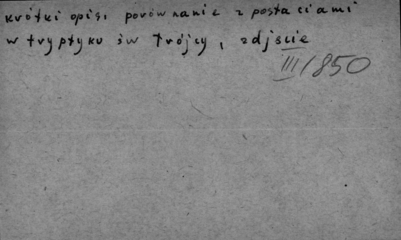 krótki opis, porównanie z postaciami
w tryptyku św Trójcy, zdjęcie
III/850